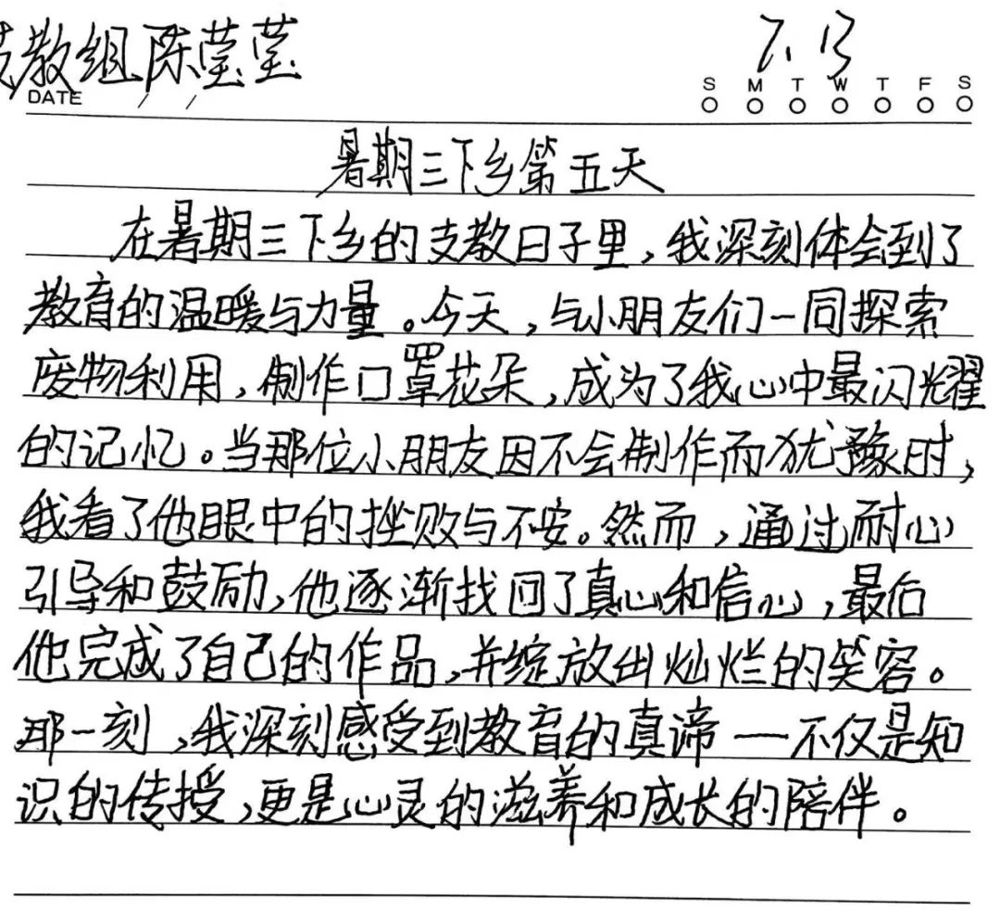 支教组陈莹莹 7.13
DATE / / S M T W T F S
暑期三下乡第五天
在暑期三下乡的支教日子里,我深刻体会到了
教育的温暖与力量。今天,与小朋友们一同探索
废物利用,制作口罩花朵,成为了我心中最闪耀
的记忆。当那位小朋友因不会制作而犹豫时,
我看了他眼中的挫败与不安。然而,通过耐心
引导和鼓励,他逐渐找回了真心和信心,最后
他完成了自己的作品,并绽放出灿烂的笑容。
那一刻,我深刻感受到教育的真谛一不仅是知
识的传授,更是心灵的滋养和成长的陪伴。